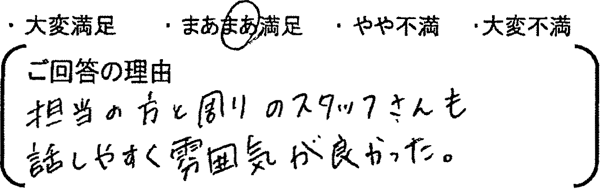 ・大変満足 ・まあまあ満足 ・やや不満 ・大変不満
ご回答の理由
担当の方と周りのスタッフさんも
話しやすく雰囲気が良かった。